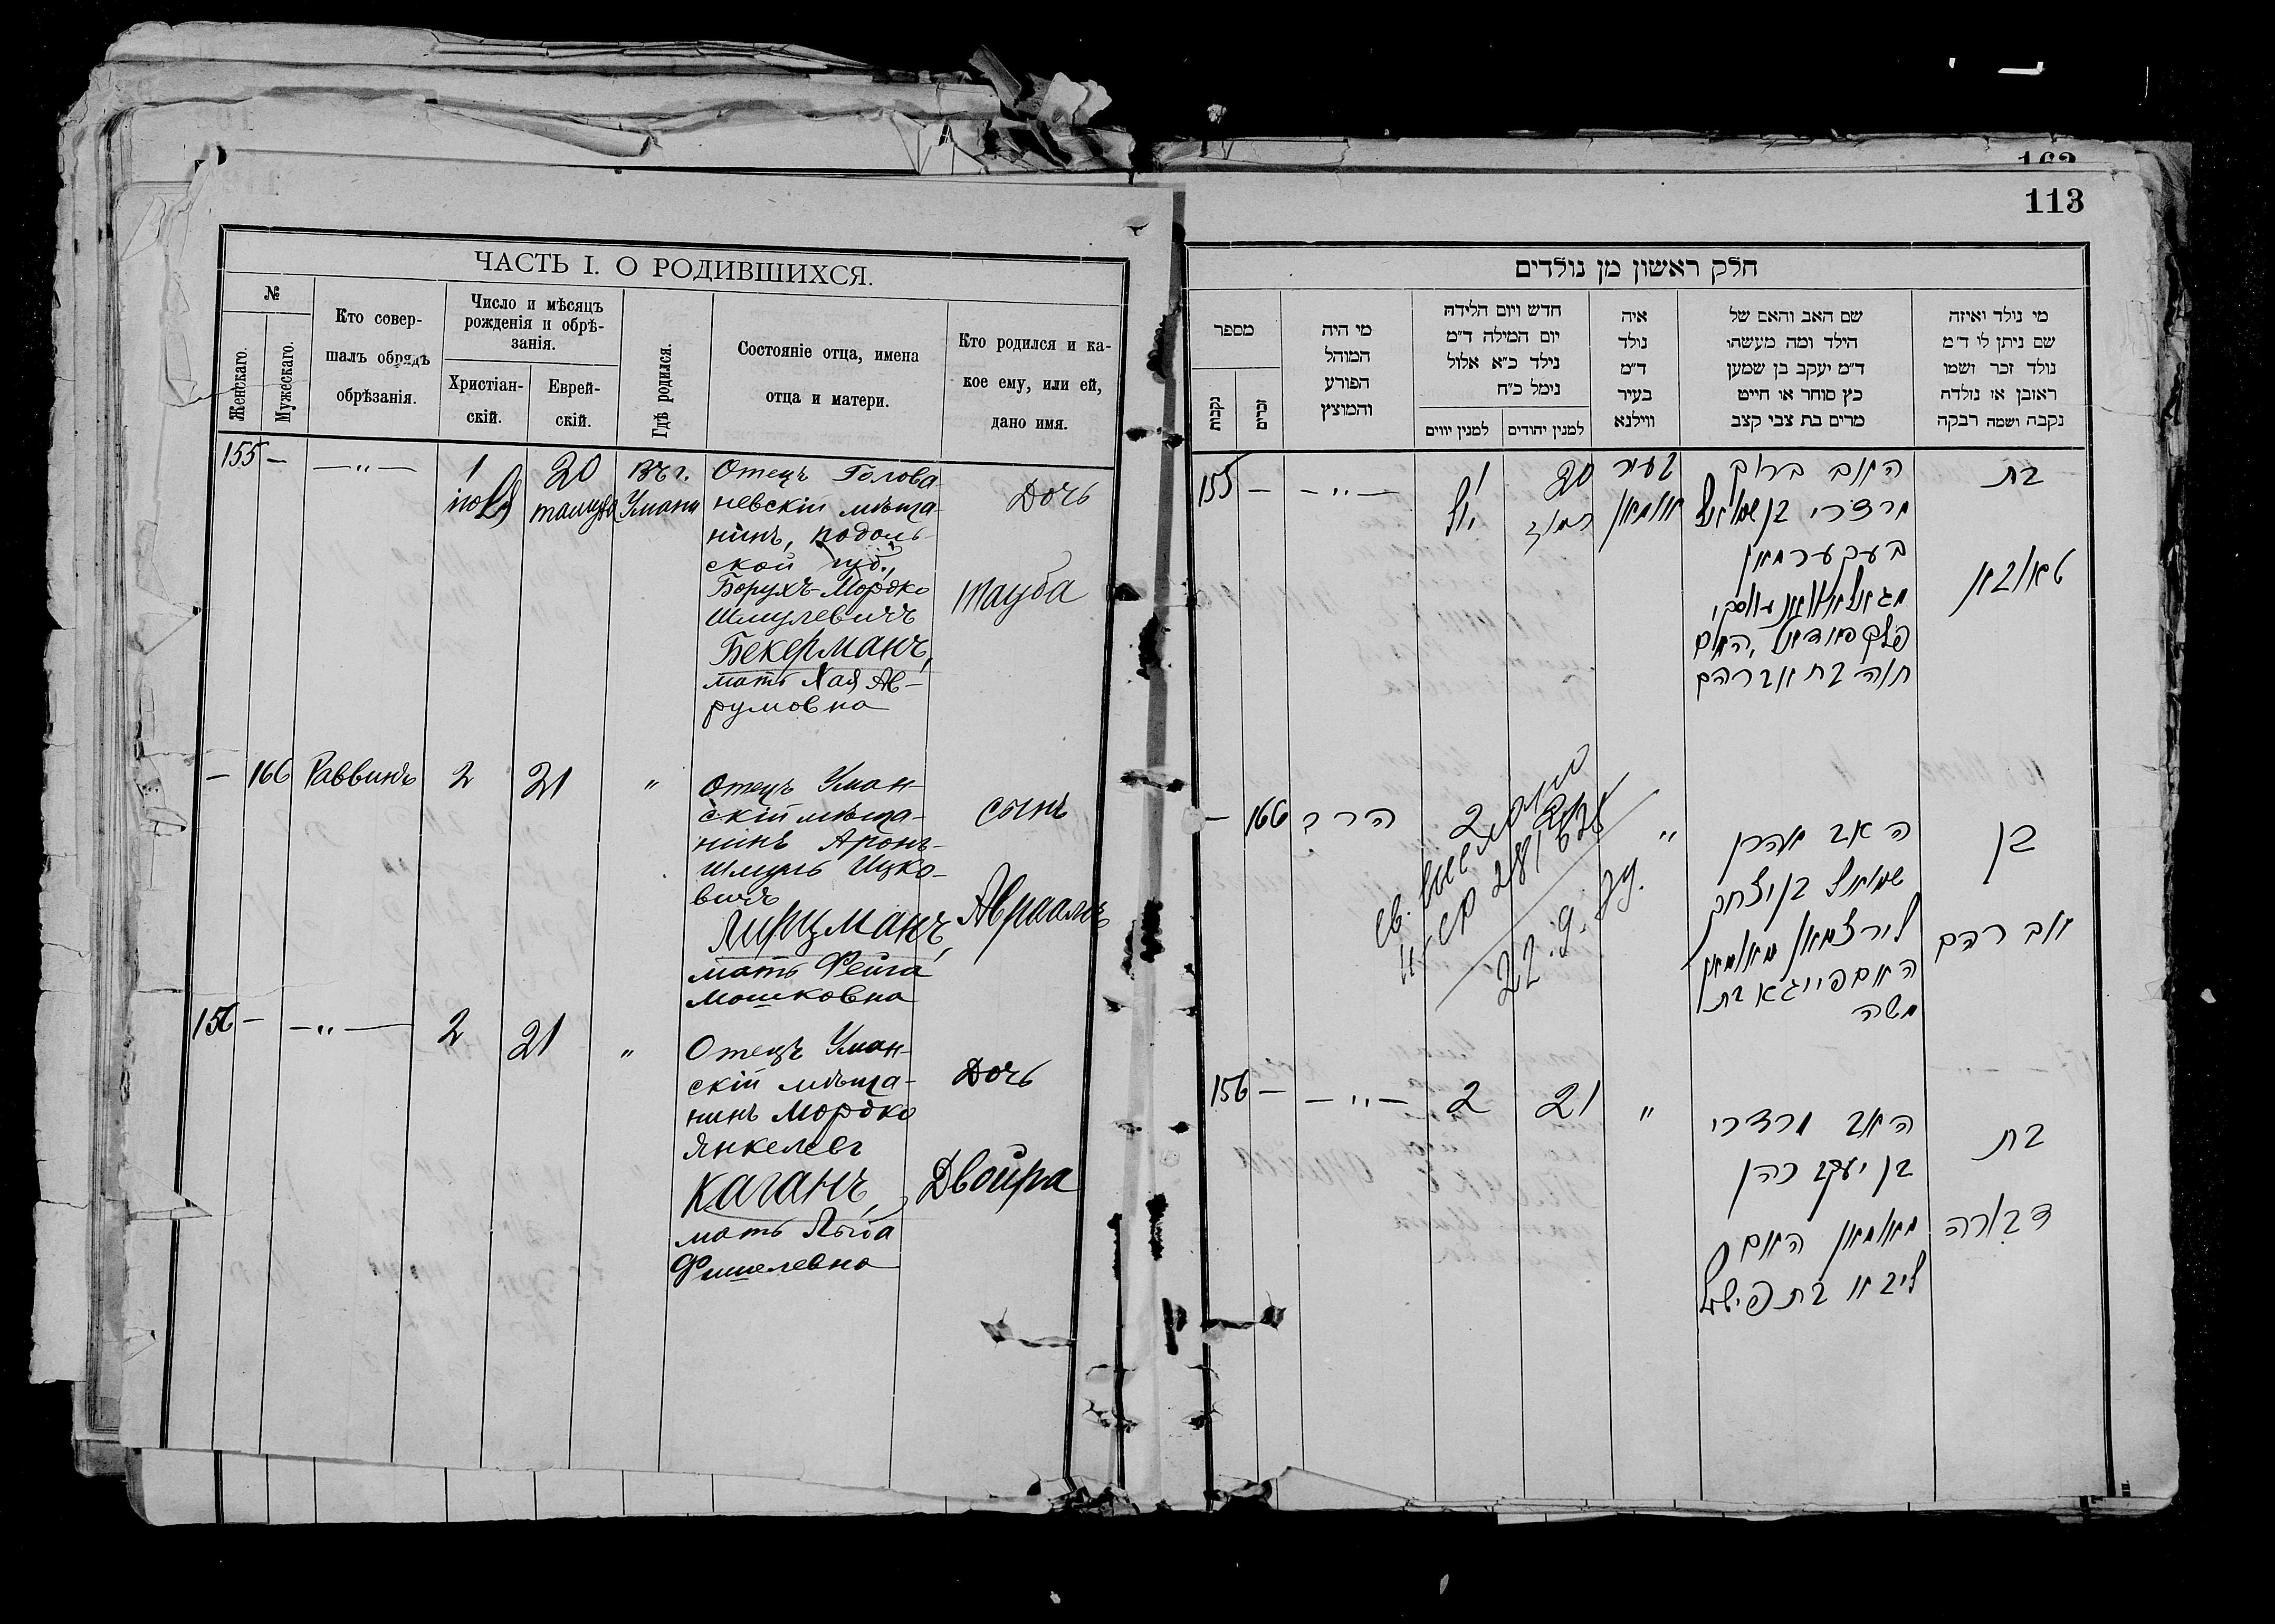 ЧАСТЬ I. О РОДИВШИХСЯ.
№
Женскаго.
Мужескаго.
Кто совер-
шалъ обрядъ
обрѣзанія.
Число и мѣсяцъ
рожденія и обрѣ-
занія.
Христіан-
скій.
Еврей-
скій.
Гдѣ родился.
Состояніе отца, имена
отца и матери.
Кто родился и ка-
кое ему, или ей,
дано имя.
155 — —„— 1 20 Въ г.
іюля тамуза Умани
Отецъ Голова
невскій мѣща
нинъ, Подоль
ской губ.,
Борухъ-Мордко
Шмулевичъ
Бекерманъ,
мать Хая Ав-
румовна
Дочь
Тауба
— 166 Раввинъ 2 21 „
Отецъ Уман-
скій мѣща-
нинъ Аронъ-
Шмуль Ицко-
вичъ
Лирцманъ,
мать Фейга
Мошковна
сынъ
Авраамъ
156 — —„— 2 21 „
Отецъ Уман-
скій мѣща-
нинъ Мордко
Янкелев
Каганъ,
мать Лыба
Фишелевна
Дочь
Двойра
113
חלק ראשון מן נולדים
מספר
נקבות
זכרים
מי היה
המוהל
הפורע
והמוצץ
חדש ויום הלידה
יום המילה ד״מ
נילד כ״א אלול
נימל כ״ח
למנין יווים
למנין יהודים
איה
נולד
ד״מ
בעיר
ווילנא
שם האב והאם של
הילד ומה מעשהו
ד״מ יעקב בן שמען
כץ סוחר או חייט
מרים בת צבי קצב
מי נולד ואיזה
שם ניתן לו ד״מ
נולד זכר ושמו
ראובן או נולדה
נקבה ושמה רבקה
155 — —„— 1 20 בעיר
יול תמוז אומאן
האב ברוך
מרדכי בן שמואל
בעקערמאן
האם
חוה בת אברהם
בת
טאובא
— 166 הרב 2 21 „
22.9.
האב אהרן
שמואל בן יצחק
לירצמאן מאומאן
האם פייגא בת
משה
בן
אברהם
156 — —„— 2 21 „
האב מרדכי
בן יעקב כהן
מאומאן האם
ליבא בת פישל
בת
דבורה